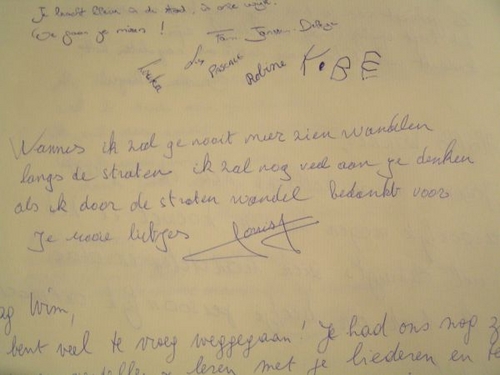 Je bracht kleur in de stad, in onze
We gaan je missen! Fam. Janssen-
Loeka Pascale Robine KOBE
Wannes ik zal je nooit meer zien wandelen
langs de straten ik zal nog veel aan je denken
als ik door de straten wandel bedankt voor
Je mooie liedjes
ag Wim,
bent veel te vroeg weggegaan! Je had ons nog
leren met je liederen en